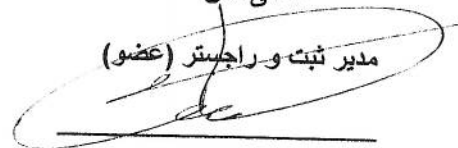 مدیر ثبت و راجستر (عضو)